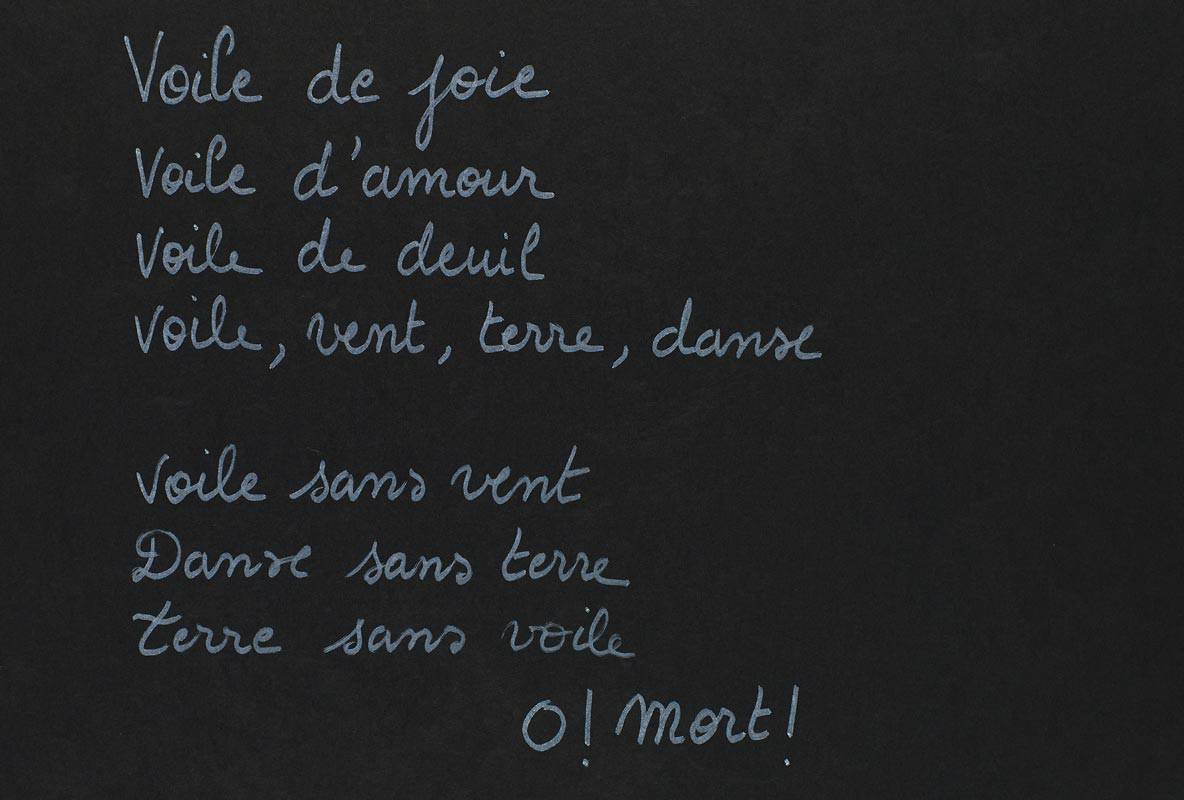 Voile de joie
Voile d'amour
Voile de deuil
Voile, vent, terre, danse
Voile sans vent
Danse sans terre
terre sans voile
O! Mort!